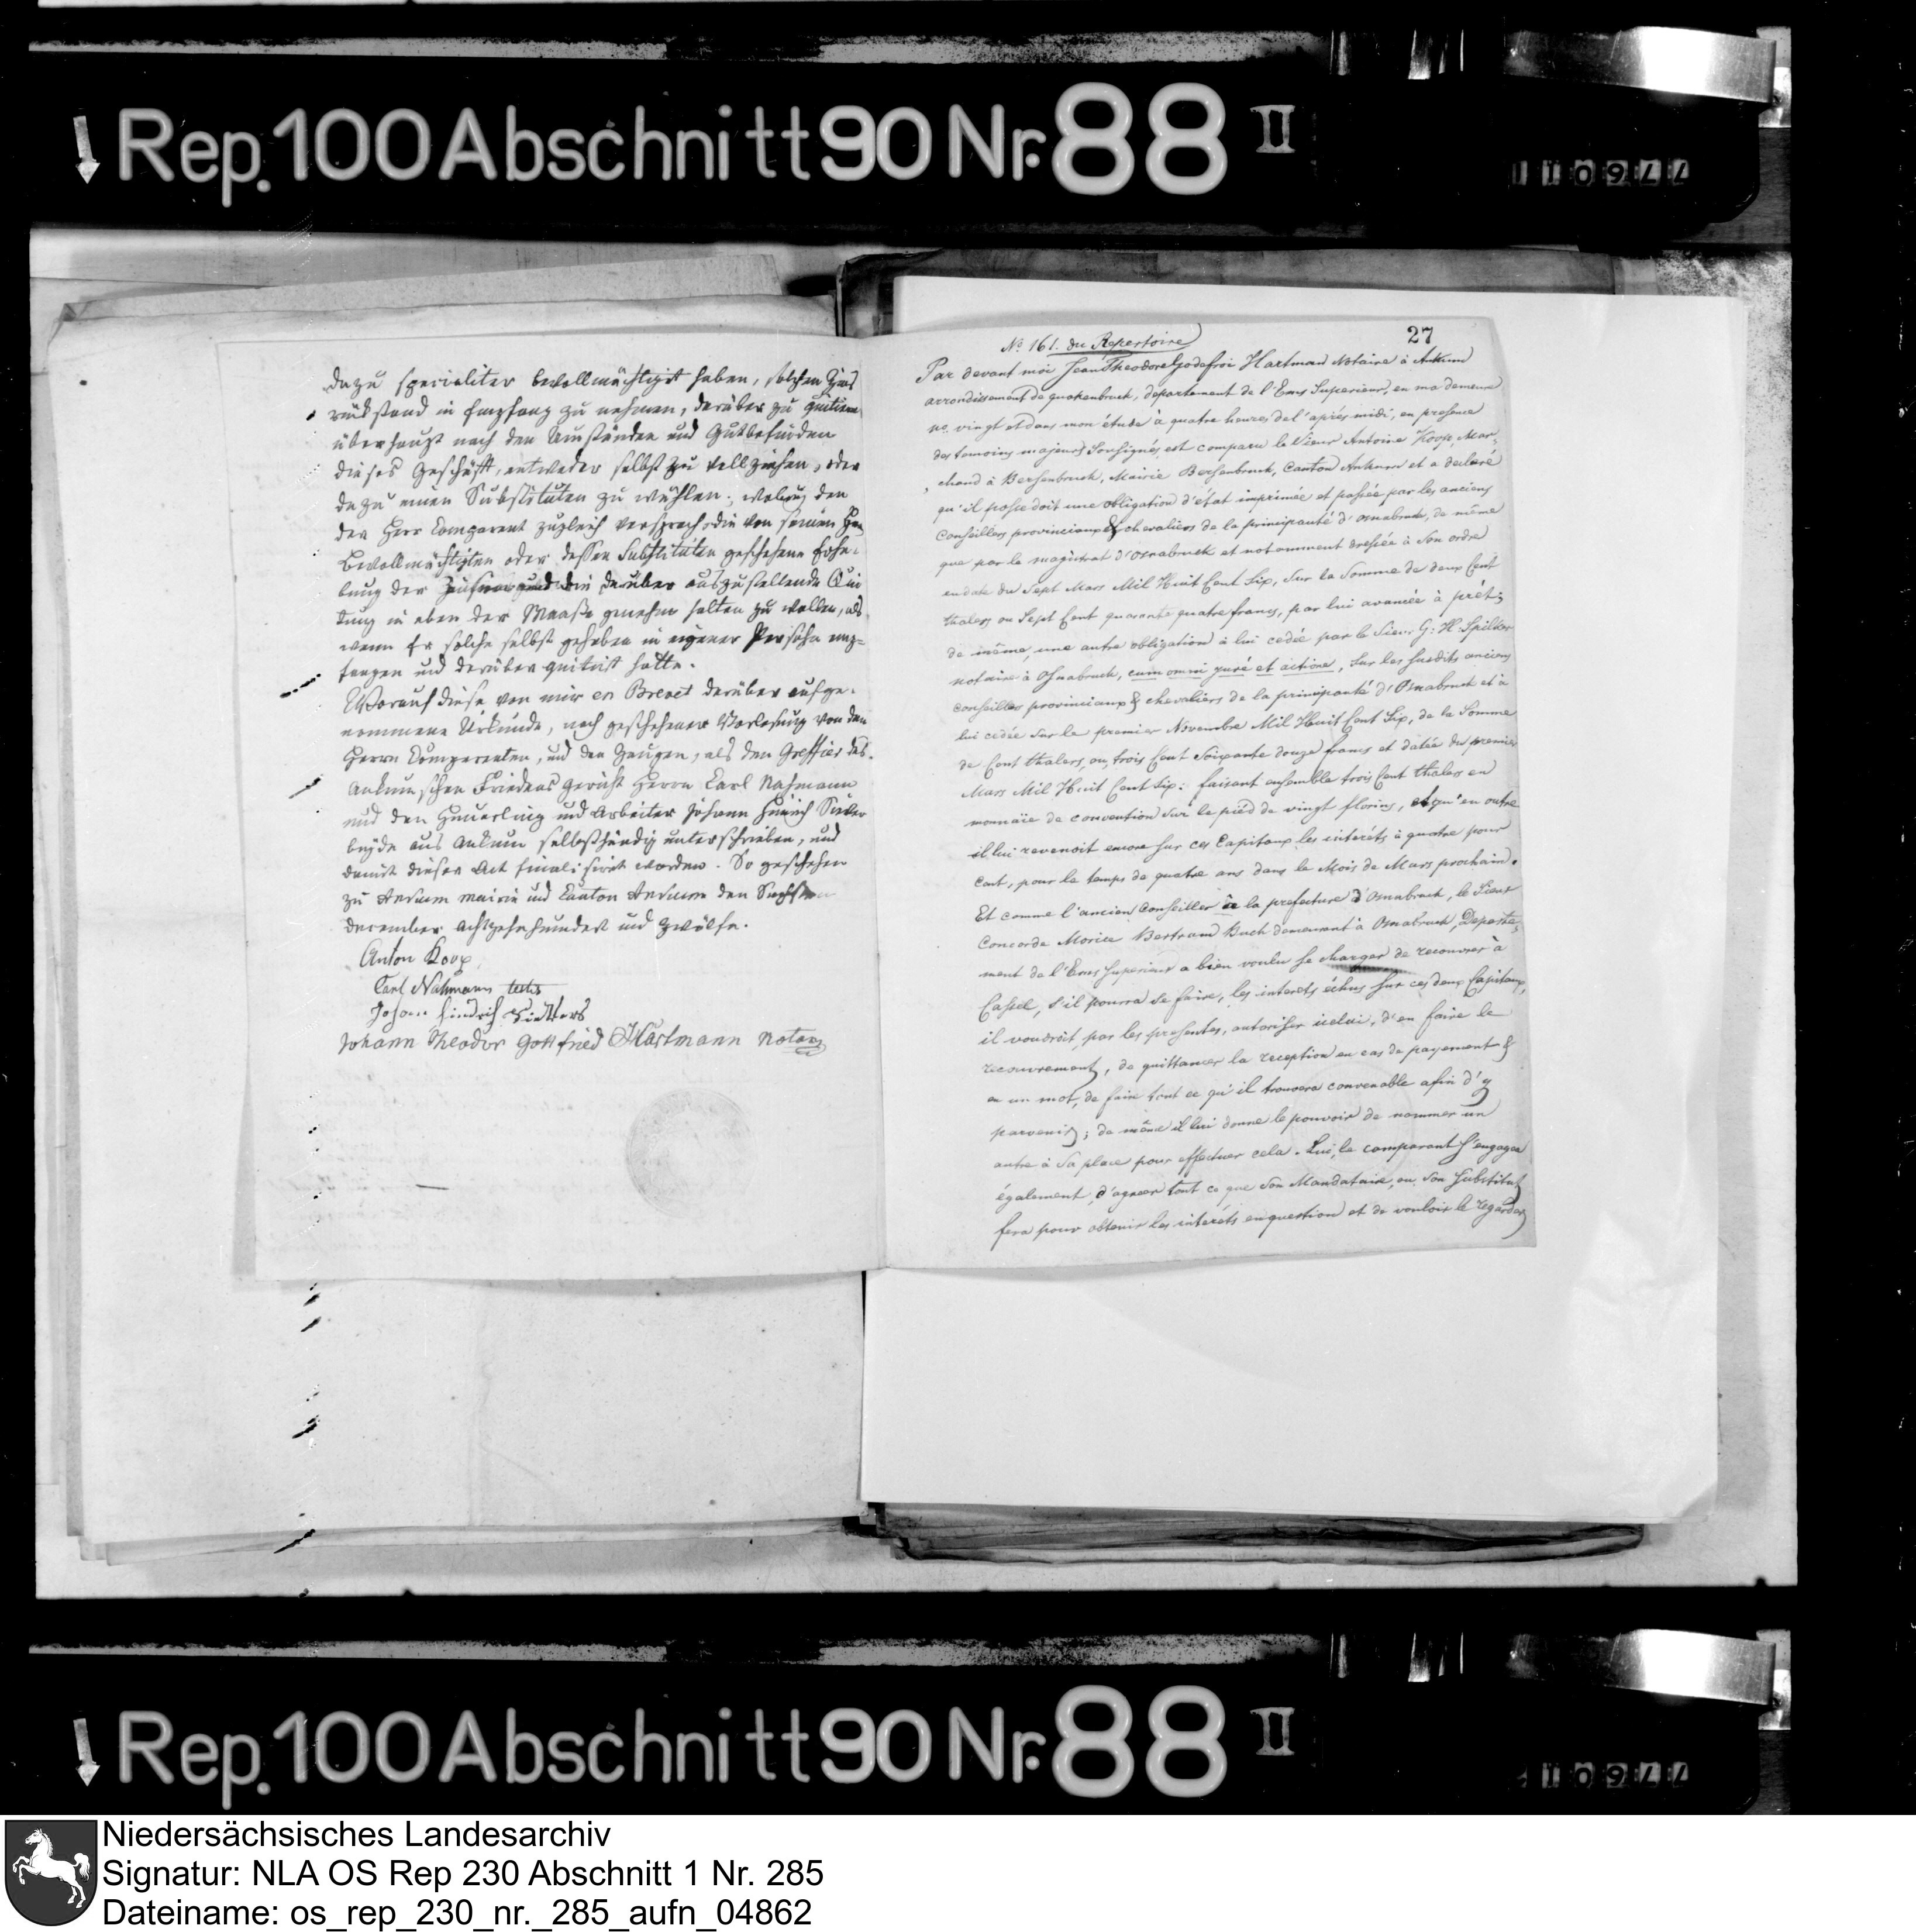 Rep. 100 Abschnitt 90 Nr. 88 II
110977
dazu specialiter bevollmächtigt haben, solchen Zins
rückstand in Empfang zu nehmen, darüber zu quitiren
überhaupt nach den Umständen und Gutbefinden
dieses Geschäft, entweder selbst zu vollziehen, oder
dazu einen Substituten zu wählen; welchen
der Herr Comparent zugleich versprach die von seinem
Bevollmächtigten oder dessen Substituten geschehene Erhe-
bung der Zinsen und die darüber auszustellende Qui
tung in eben der Maaße genehm halten zu wollen, als
wenn Er solche selbst gehoben in eigener Persohn emp-
fangen und darüber quitirt hätte.
Worauf diese von mir en Brevet darüber aufge-
nommene Urkunde, nach geschehener Verlesung von dem
Herrn Comparenten, und den Zeugen, als den Greffier des
Ankumschen Friedens Gericht Herrn Carl Nahmann
und den Heuerling und Arbeiter Johann Hinrich
aus Ankum selbsthändig unterschrieben, und
damit dieser Act finalisirt worden. So geschehen
zu Ankum Mairie und Canton Ankum den
December Achtzehnhundert und Zwölfe.
Anton Koop
Carl Nahmann testis
Johann Hindrich
Johann Theodor Gottfried Hartmann Notar
27
No. 161. du Repertoire
Par devant moi Jean Theodore Godefroi Hartman Notaire à Ankum
arrondissement de quakenbruck, departement de l'Ems Superieur, en ma demeure
no. vingt et dans mon étude à quatre heures de l'après midi, en presence
des temoins majeurs Soussignés, est comparu le Sieur Antoine Koop, Mar-
chand à Bersenbruck, Mairie Bersenbruck, Canton Ankum et a declaré
qu'il possedoit une obligation d'état imprimée et passée par les anciens
Conseillers provinciaux & chevaliers de la principauté d'Osnabruck, de même
que par le magistrat d'Osnabruck et notamment dressée à Son ordre
en date du Sept Mars Mil Huit Cent Six, Sur la Somme de deux Cent
thalers ou Sept Cent quarante quatre francs, par lui avancée à prêt;
de même, une autre obligation à lui cedée par le Sieur G: H: Spilker
notaire à Osnabruck, cum omni juré et actione, Sur les Susdits anciens
Conseillers provinciaux & chevaliers de la principauté d'Osnabruck et à
lui cedée Sur le premier Novembre Mil Huit Cent Six, de la Somme
de Cent thalers, ou, trois Cent Soixante douze francs et datée du premier
Mars Mil Huit Cent Six: faisant ensemble trois Cent thalers en
monnaie de convention Sur le pied de vingt florins, et qu'en outre
il lui revenoit encore Sur ces Capitaux les interêts à quatre pour
Cent, pour le temps de quatre ans dans le Mois de Mars prochain.
Et comme l'ancien Conseiller de la prefecture d'Osnabruck, le Sieur
Concorde Morice Bertrand Buch demeurant à Osnabruck, Departe-
ment de l'Ems Superieur a bien voulu se charger de recouvrer à
Cassel, S'il pourra se faire, les interets échus Sur ces deux Capitaux,
il voudroit, par les presentes, autoriser icelui, d'en faire le
recouvrement, de quittancer la reception en cas de payement &
en un mot, de faire tout ce qu'il trouvera convenable afin d'y
parvenir; de même il lui donne le pouvoir de nommer un
autre à Sa place pour effectuer cela. Lui, le comparant S'engagea
également, d'agreer tout ce que Son Mandataire, ou Son Substitut
fera pour obtenir les interêts en question et de vouloir le regarder
Rep. 100 Abschnitt 90 Nr. 88 II
110977
Niedersächsisches Landesarchiv
Signatur: NLA OS Rep 230 Abschnitt 1 Nr. 285
Dateiname: os_rep_230_nr._285_aufn_04862